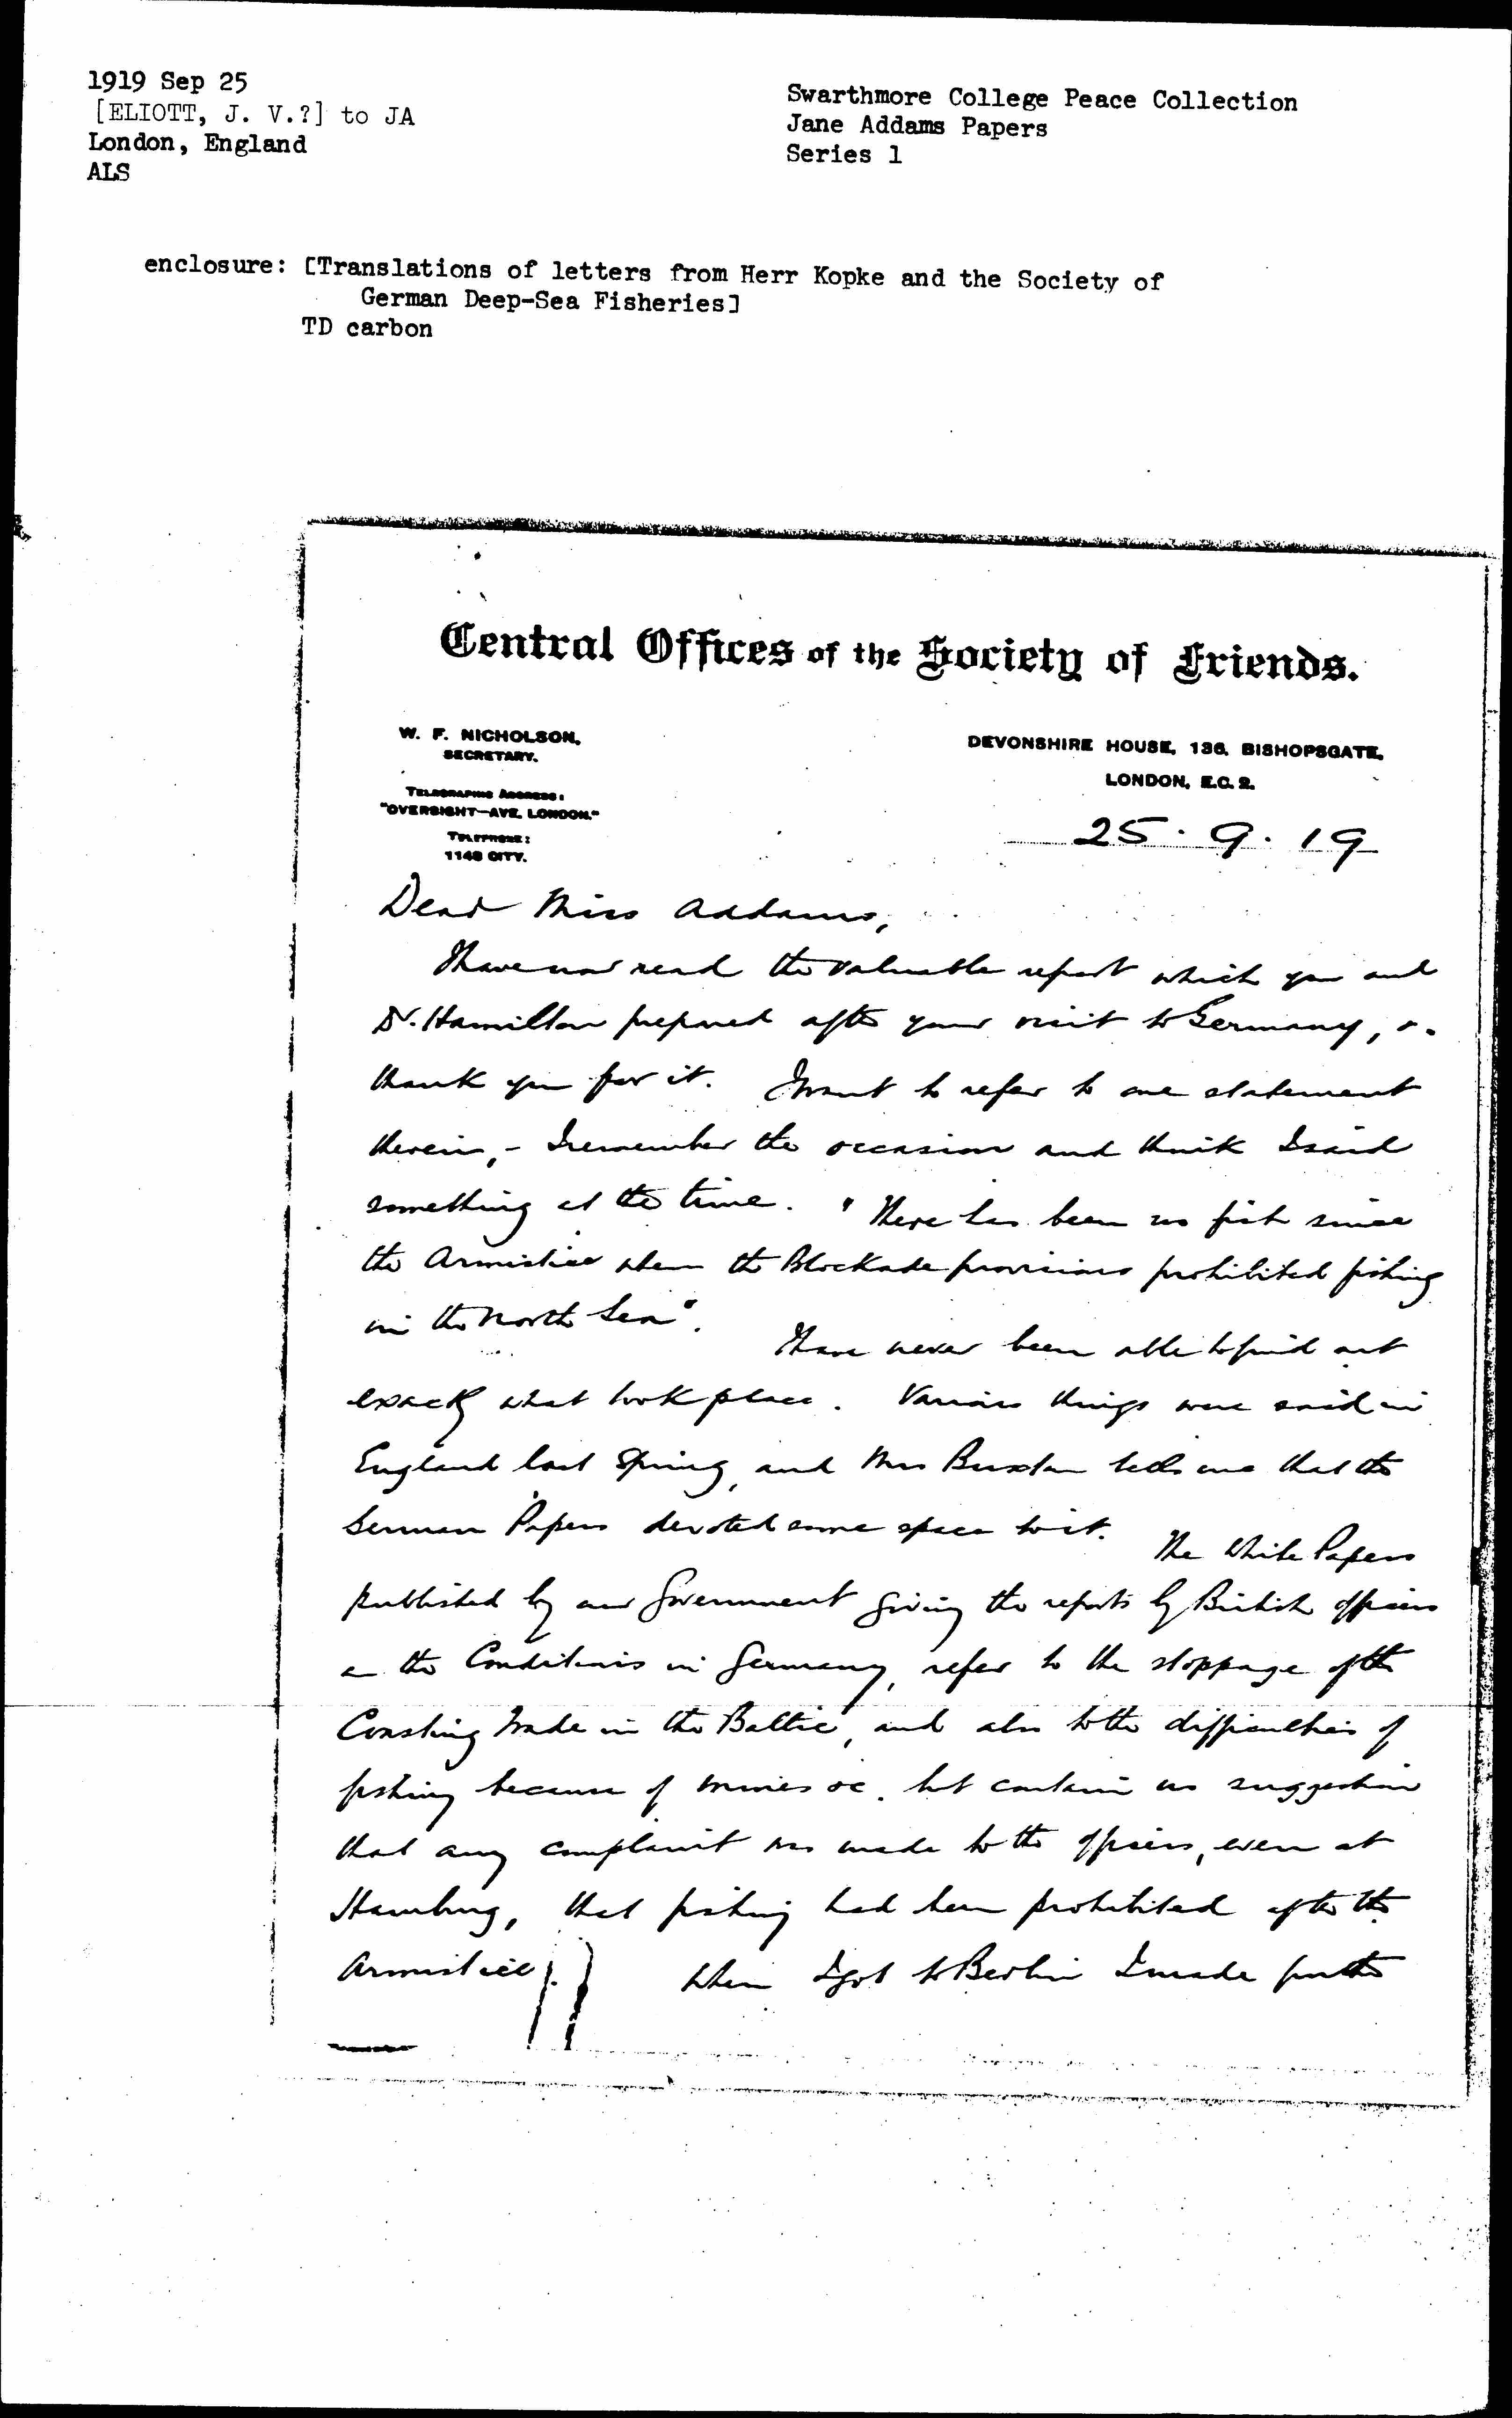 1919 Sep 25
[ELIOTT, J. V.?] to JA
London, England
ALS
Swarthmore College Peace Collection
Jane Addams Papers
Series 1
enclosure: [Translations of letters from Herr Kopke and the Society of
German Deep-Sea Fisheries]
TD carbon
Central Offices of the Society of Friends.
W. F. NICHOLSON,
SECRETARY.
TELEGRAPHIC ADDRESS:
"OVERSIGHT—AVE. LONDON."
TELEPHONE:
1148 CITY.
DEVONSHIRE HOUSE, 136, BISHOPSGATE,
LONDON, E.C. 2.
25 . 9 . 19
Dear Miss Addams,
I have now read the valuable report which you and
Dr. Hamilton prepared after your visit to Germany, &
thank you for it. I want to refer to one statement
therein, - I remember the occasion and think I said
something at the time. "There has been no fish since
the Armistice when the Blockade provisions prohibited fishing
in the North Sea".
I have never been able to find out
exactly what took place. Various things were said in
England last Spring, and Mrs Buxton tells me that the
German Papers devoted some space to it. The White Papers
published by our Government giving the reports by British officers
on the Conditions in Germany, refer to the stoppage of the
Coasting trade in the Baltic, and also to the difficulties of
fishing because of mines &c. but contain no suggestion
that any complaint was made to the officers, even at
Hamburg, that fishing had been prohibited after the
Armistice. When I got to Berlin I made further